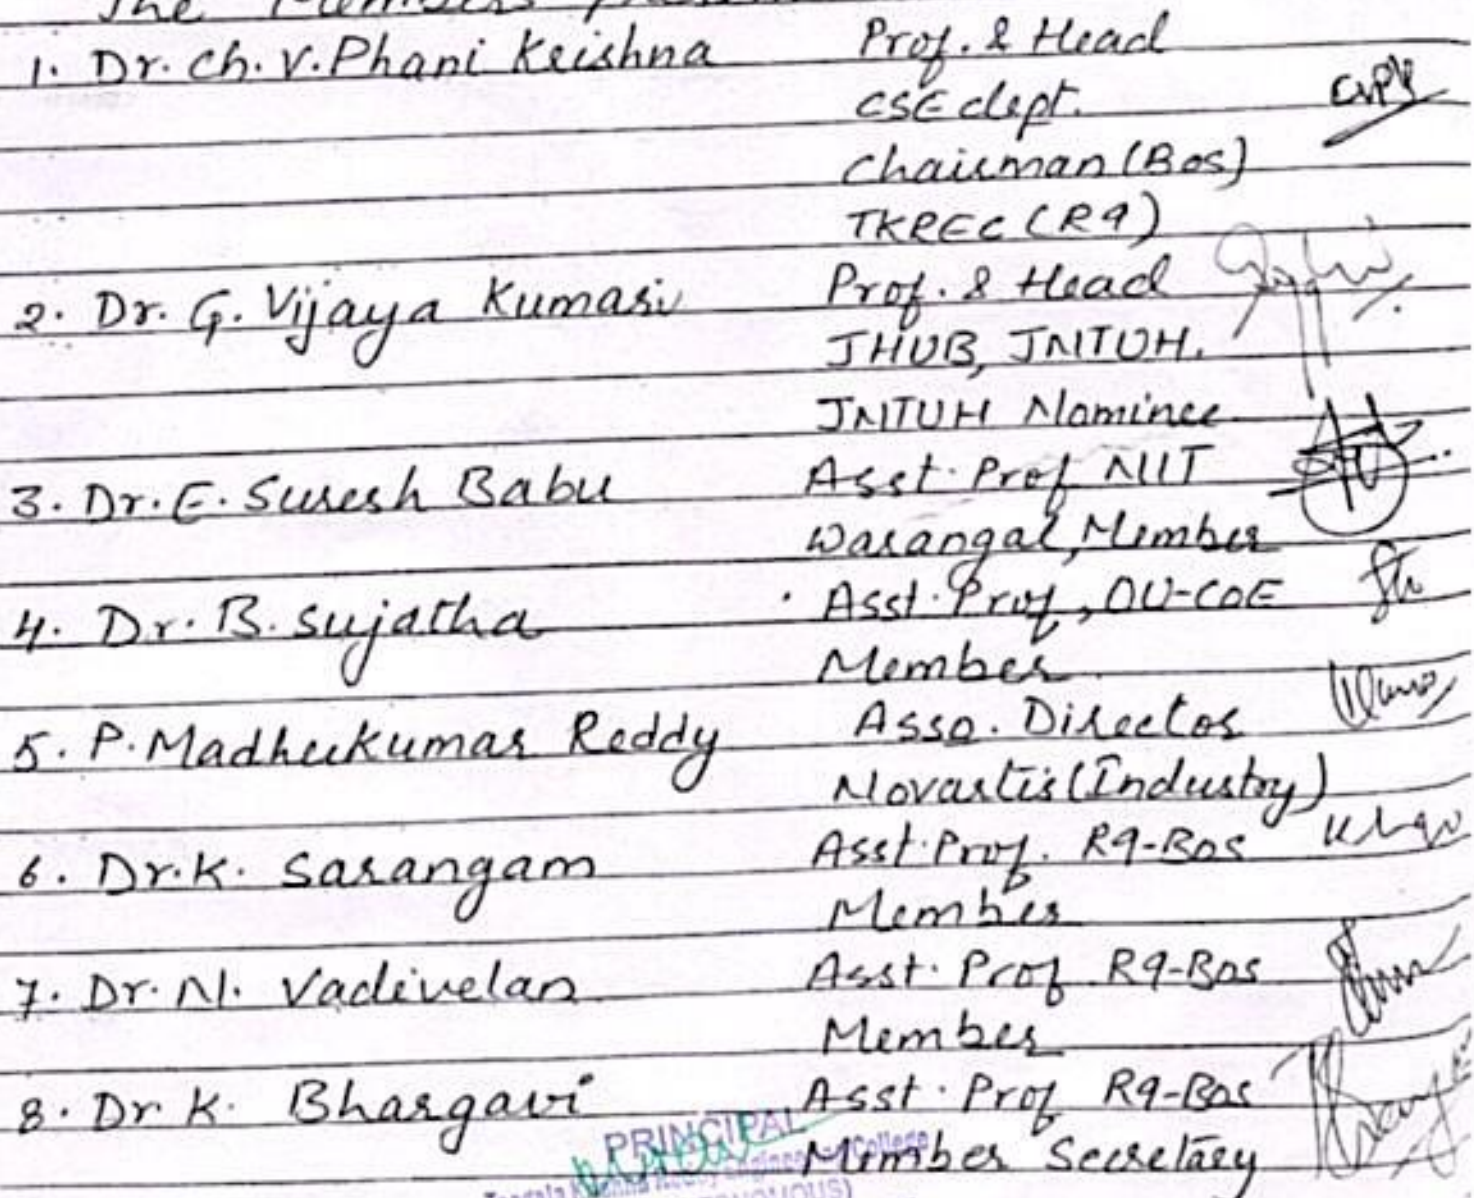 The Members
1. Dr. Ch. V. Phani Krishna Prof. & Head
CSE dept.
Chairman (Bos)
TKREC (R9)
2. Dr. G. Vijaya Kumari Prof. & Head
JHUB, JNTUH.
JNTUH Nominee
3. Dr. E. Suresh Babu Asst. Prof NIT
Warangal, Member
4. Dr. B. Sujatha Asst. Prof, OU-COE
Member
5. P. Madhukumar Reddy Asso. Director
Novartis (Industry)
6. Dr. K. Sarangam Asst. Prof. R9-Bos
Member
7. Dr. N. Vadivelan Asst. Prof R9-Bos
Member
8. Dr K. Bhargavi Asst. Prof R9-Bos
Member Secretary
PRINCIPAL
College